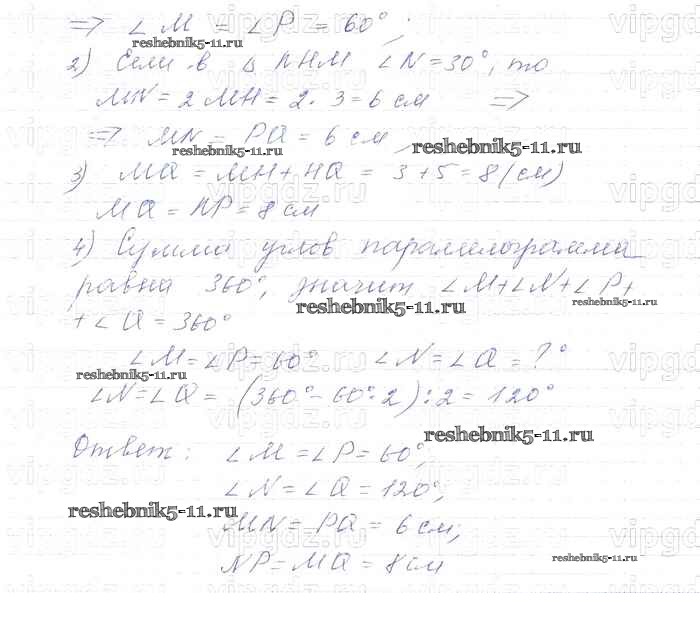 => ∠M = ∠P = 60°;
reshebnik5-11.ru
2) Если в △ NHM ∠N = 30°, то
MN = 2 MH = 2 · 3 = 6 см =>
=> MN = PQ = 6 см
reshebnik5-11.ru reshebnik5-11.ru
3) MQ = MH + HQ = 3 + 5 = 8 (см)
MQ = NP = 8 см
4) Сумма углов параллелограмма
равна 360°, значит ∠M + ∠N + ∠P +
reshebnik5-11.ru reshebnik5-11.ru
+ ∠Q = 360°
∠M = ∠P = 60° ∠N = ∠Q = ?°
reshebnik5-11.ru
∠N = ∠Q = (360° - 60° · 2) : 2 = 120°
reshebnik5-11.ru
Ответ: ∠M = ∠P = 60°;
∠N = ∠Q = 120°;
reshebnik5-11.ru
MN = PQ = 6 см;
NP = MQ = 8 см
reshebnik5-11.ru